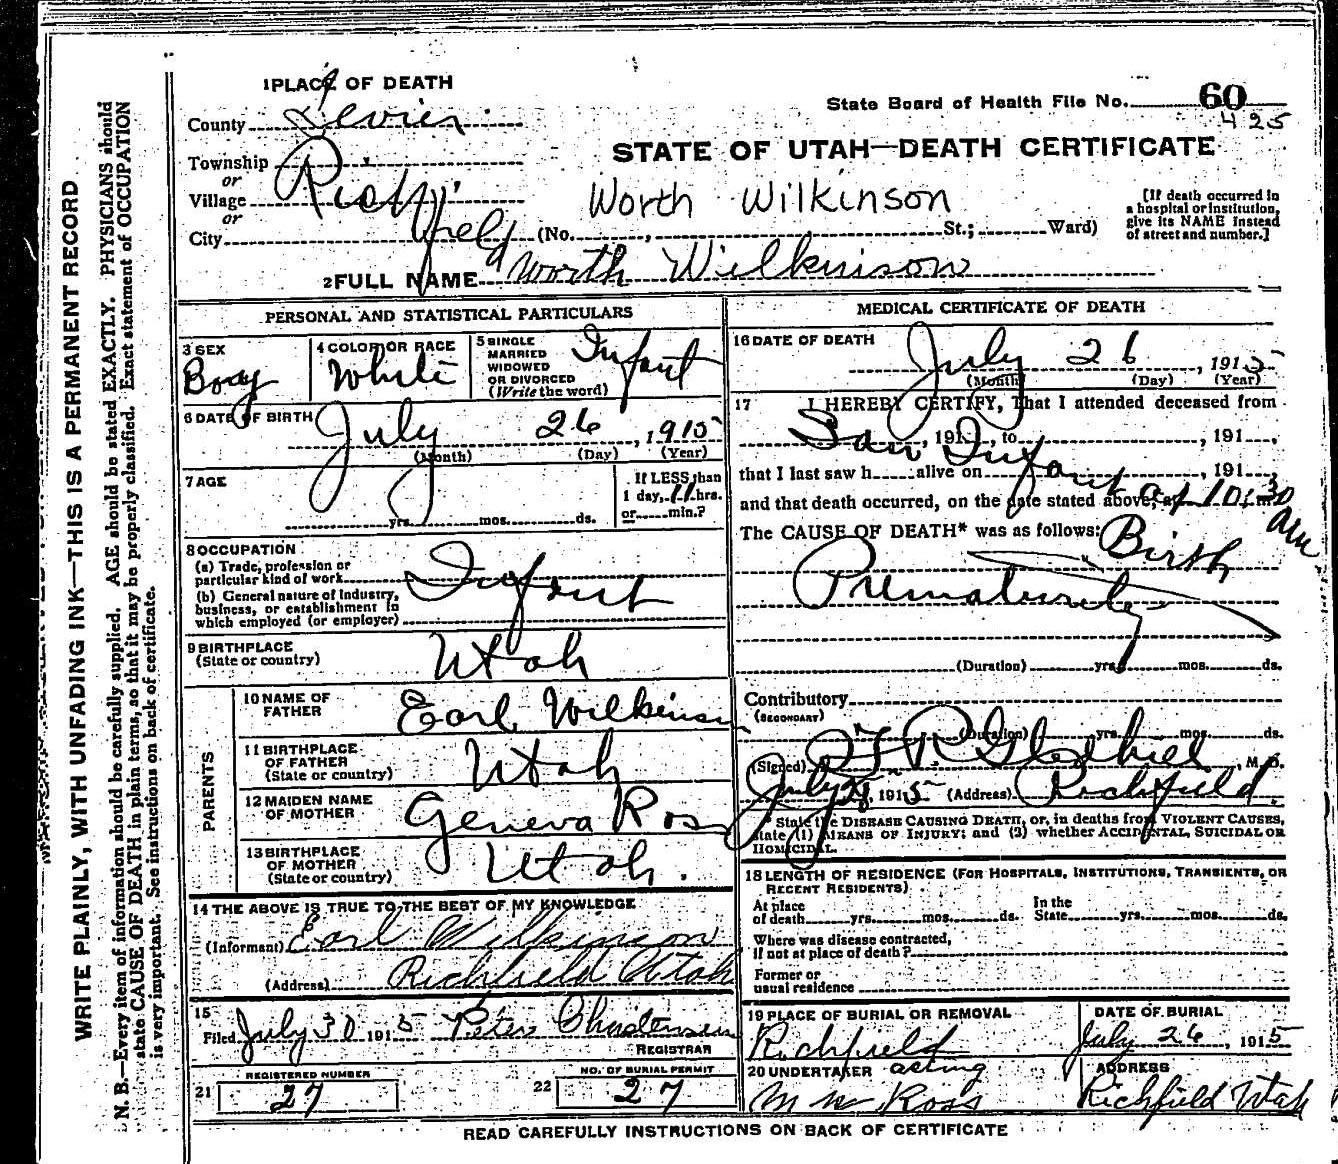 1 PLACE OF DEATH
County Sevier
State Board of Health File No. 60
425
STATE OF UTAH—DEATH CERTIFICATE
Township
or
Village Richfield
or
City
Worth Wilkinson
(No. , St.; Ward)
[If death occurred in
a hospital or institution,
give its NAME instead
of street and number.]
2 FULL NAME Worth Wilkinson
PERSONAL AND STATISTICAL PARTICULARS
3 SEX
Boy
4 COLOR OR RACE
White
5 SINGLE
MARRIED
WIDOWED
OR DIVORCED
(Write the word)
Infant
6 DATE OF BIRTH
July 26, 1915
(Month) (Day) (Year)
7 AGE
yrs. mos. ds.
If LESS than
1 day, hrs.
or min.?
8 OCCUPATION
(a) Trade, profession or
particular kind of work
(b) General nature of Industry,
business, or establishment in
which employed (or employer)
Infant
9 BIRTHPLACE
(State or country)
Utah
PARENTS
10 NAME OF
FATHER
Earl Wilkinson
11 BIRTHPLACE
OF FATHER
(State or country)
Utah
12 MAIDEN NAME
OF MOTHER
Geneva Ross
13 BIRTHPLACE
OF MOTHER
(State or country)
Utah.
14 THE ABOVE IS TRUE TO THE BEST OF MY KNOWLEDGE
(Informant) Earl Wilkinson
(Address) Richfield Utah
15
Filed July 30 1915 Peter Christensen
REGISTRAR
21
REGISTERED NUMBER
27
22
NO. OF BURIAL PERMIT
27
MEDICAL CERTIFICATE OF DEATH
16 DATE OF DEATH
July 26, 1915
(Month) (Day) (Year)
17 I HEREBY CERTIFY, That I attended deceased from
, 191 , to , 191 ,
Saw Infant
that I last saw h alive on , 191 ,
and that death occurred, on the date stated above, at 10:30 m
am
The CAUSE OF DEATH* was as follows:
Birth
Prematurity
(Duration) yrs. mos. ds.
Contributory
(SECONDARY)
(Duration) yrs. mos. ds.
(Signed) Gledhill, M.D.
July 28, 1915 (Address) Richfield.
* State the DISEASE CAUSING DEATH, or, in deaths from VIOLENT CAUSES,
state (1) MEANS OF INJURY; and (2) whether ACCIDENTAL, SUICIDAL OR
HOMICIDAL.
18 LENGTH OF RESIDENCE (FOR HOSPITALS, INSTITUTIONS, TRANSIENTS, OR
RECENT RESIDENTS)
At place
of death yrs. mos. ds.
In the
State yrs. mos. ds.
Where was disease contracted,
if not at place of death?
Former or
usual residence
19 PLACE OF BURIAL OR REMOVAL
Richfield
DATE OF BURIAL
July 26, 1915
20 UNDERTAKER acting
M W Ross
ADDRESS
Richfield Utah
READ CAREFULLY INSTRUCTIONS ON BACK OF CERTIFICATE
WRITE PLAINLY, WITH UNFADING INK—THIS IS A PERMANENT RECORD
N. B.—Every item of information should be carefully supplied. AGE should be stated EXACTLY. PHYSICIANS should
state CAUSE OF DEATH in plain terms, so that it may be properly classified. Exact statement of OCCUPATION
is very important. See instructions on back of certificate.